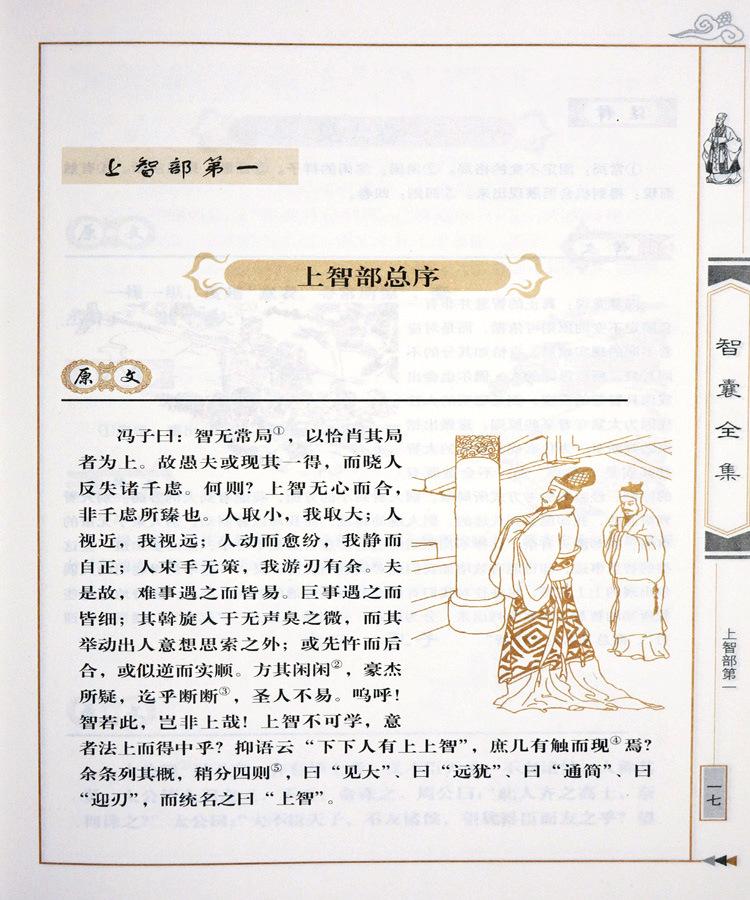 上智部第一
上智部总序
原文
冯子曰：智无常局①，以恰肖其局
者为上。故愚夫或现其一得，而晓人
反失诸千虑。何则？上智无心而合，
非千虑所臻也。人取小，我取大；人
视近，我视远；人动而愈纷，我静而
自正；人束手无策，我游刃有余。夫
是故，难事遇之而皆易。巨事遇之而
皆细；其斡旋入于无声臭之微，而其
举动出人意想思索之外；或先忤而后
合，或似逆而实顺。方其闲闲②，豪杰
所疑，迄乎断断③，圣人不易。呜呼！
智若此，岂非上哉！上智不可学，意
者法上而得中乎？抑语云“下下人有上上智”，庶几有触而现④焉？
余条列其概，稍分四则⑤，曰“见大”、曰“远犹”、曰“通简”、曰
“迎刃”，而统名之曰“上智”。
智囊全集
上智部第一
一七